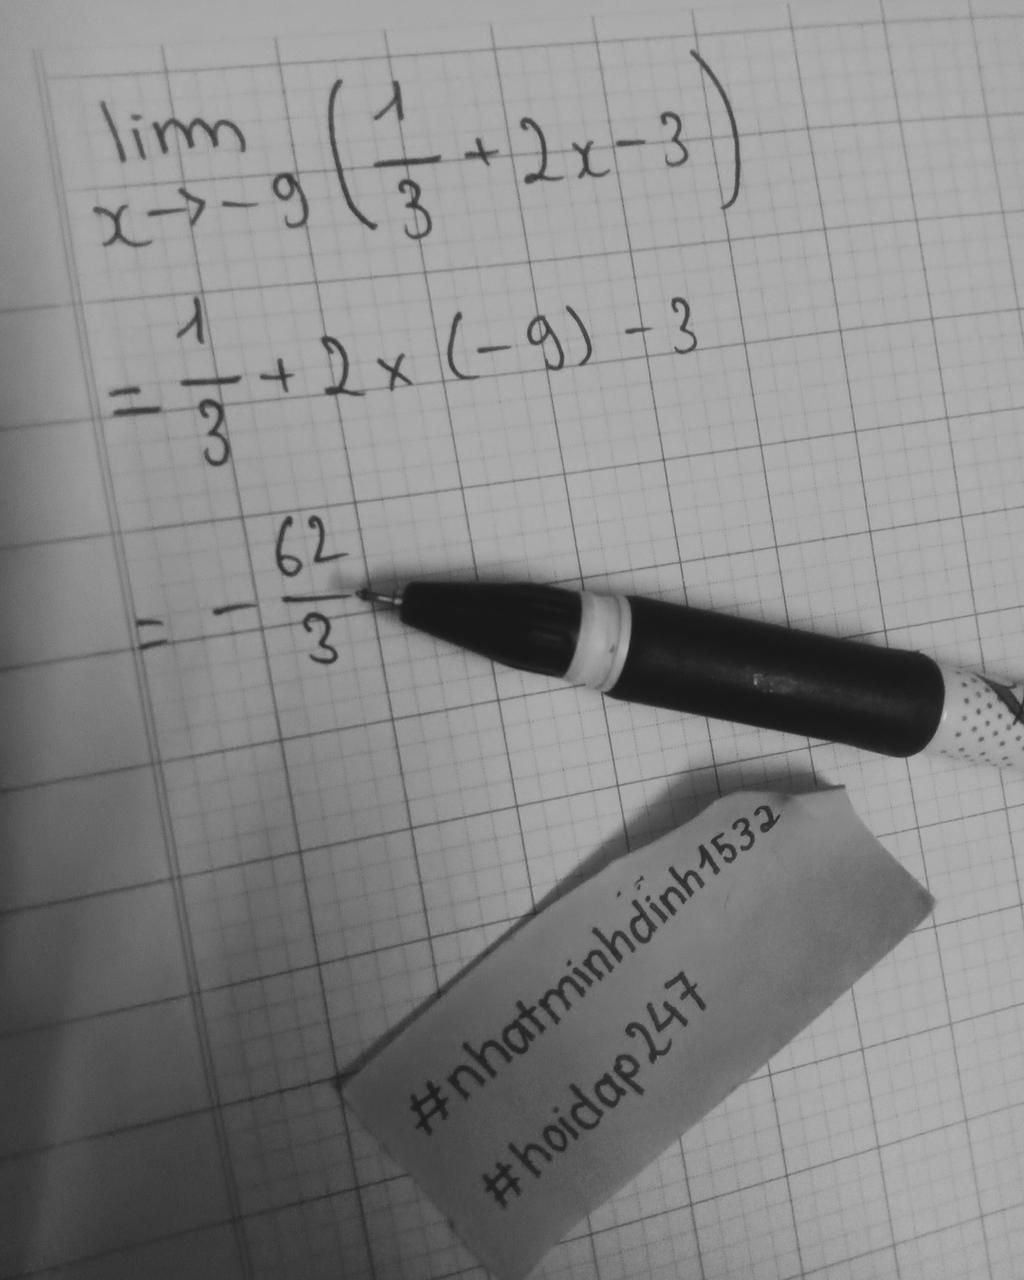 lim
x→-9 (1/3 + 2x - 3)
= 1/3 + 2 × (-9) - 3
= - 62/3
#nhatminhdinh1532
#hoidap247